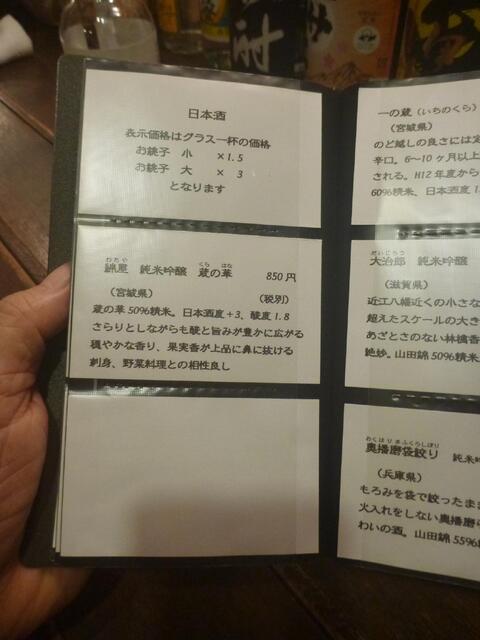 日本酒
表示価格はグラス一杯の価格
お銚子 小 ×1.5
お銚子 大 × 3
となります
わたや くら はな
綿屋 純米吟醸 蔵の華 850円
(宮城県) (税別)
蔵の華50%精米。日本酒度+3、酸度1.8
さらりとしながらも酸と旨みが豊かに広がる
穏やかな香り、果実香が上品に鼻に抜ける
刺身、野菜料理との相性良し
一の蔵(いちのくら)
(宮城県)
のど越しの良さには定
辛口。6~10ヶ月以上
される。H12年度から
60%精米、日本酒度1
だいじろう
大治郎 純米吟醸
(滋賀県)
近江八幡近くの小さな
超えたスケールの大き
あざとさのない林檎香
絶妙。山田錦50%精米
おくはりまふくろしぼり
奥播磨袋絞り 純米吟
(兵庫県)
もろみを袋で絞ったまま
火入れをしない奥播磨
わいの酒。山田錦55%精